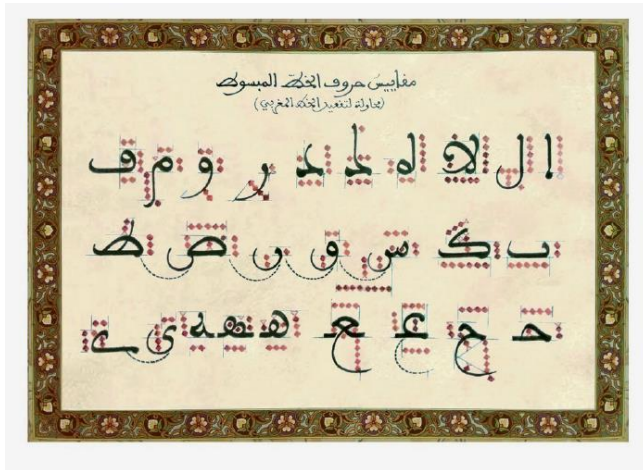 مقاييس حروف الخط المبسوط
(محاولة لتقعيد الخط المغربي)
ا ل لا د ر و م ف
ب ك س ن ص ط
ح ج ع ع ههه ى ے